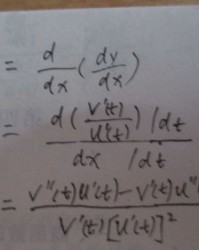 = d/dx (dy/dx)
= d(v'(t)/u'(t)) /dt / dx /dt
= v''(t)u'(t) - v'(t)u'' / v'(t)[u'(t)]²